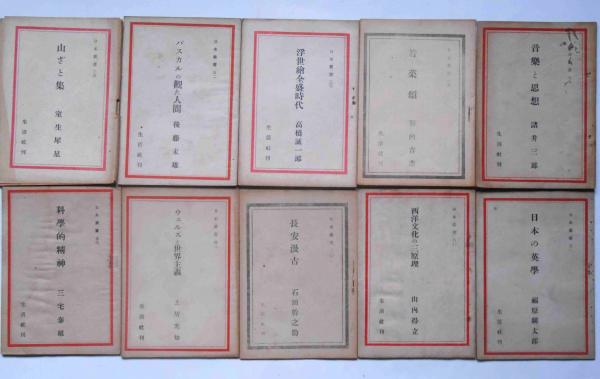 日本叢書
山ざと集
室生犀星
生活社刊
日本叢書
パスカルの觀た人間
後藤末雄
生活社刊
日本叢書
浮世繪全盛時代
高橋誠一郎
生活社刊
日本叢書
若菜頌
生活社刊
音樂と思想
諸井三郎
生活社刊
日本叢書
科學的精神
三宅泰雄
生活社刊
日本叢書
ウェルズと世界主義
土居光知
生活社刊
日本叢書
長安漫古
石田幹之助
生活社刊
日本叢書
西洋文化の三原理
山内得立
生活社刊
日本叢書
日本の英學
福原麟太郎
生活社刊